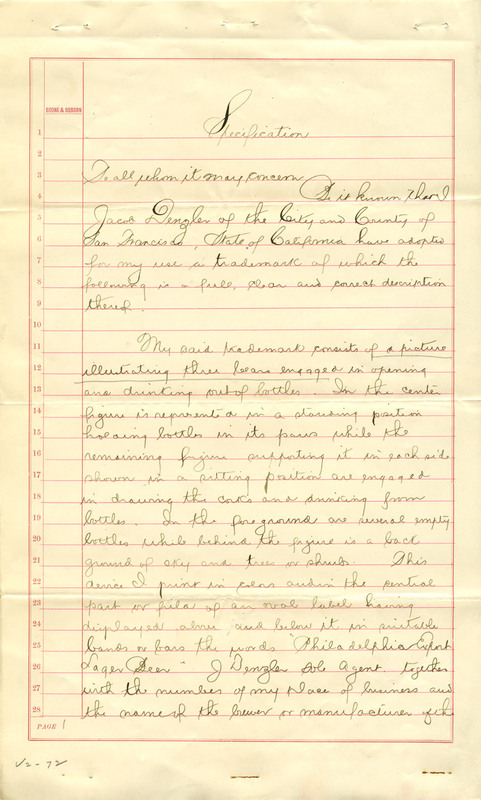 BOONE & OSBORN
Specification
1
2
3 To all whom it may concern
4 Be it known that I
5 Jacob Denzler of the City and County of
6 San Francisco, State of California have adopted
7 for my use a trademark of which the
8 following is a full, clear and correct description
9 thereof.
10
11 My said trademark consists of a picture
12 illustrating three bears engaged in opening
13 and drinking out of bottles. In the center
14 figure is represented in a standing position
15 holding bottles in its paws while the
16 remaining figure supporting it in each side
17 shown in a sitting position are engaged
18 in drawing the corks and drinking from
19 bottles. In the foreground are several empty
20 bottles while behind the figure is a back
21 ground of sky and trees or shrubs. This
22 device I print in colors and in the central
23 part or field of an oval label having
24 displayed above and below it in suitable
25 bands or bars the words "Philadelphia Export
26 Lager Beer" J Denzler Sole Agent. together
27 with the number of my place of business and
28 the name of the brewer or manufacturer of the
PAGE 1
V2-72